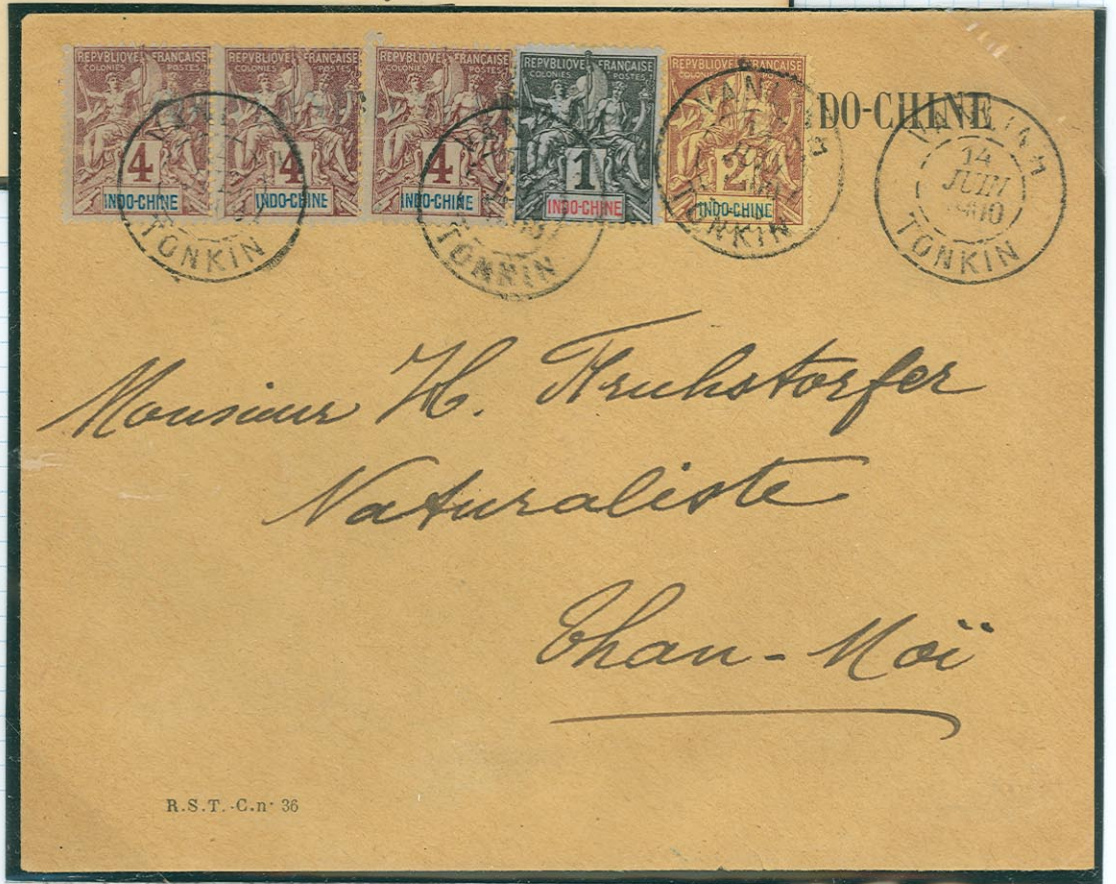 REPVBLIQVE FRANÇAISE
COLONIES POSTES
4
INDO-CHINE
REPVBLIQVE FRANÇAISE
COLONIES POSTES
4
INDO-CHINE
REPVBLIQVE FRANÇAISE
COLONIES POSTES
4
INDO-CHINE
REPVBLIQVE FRANÇAISE
COLONIES POSTES
1
INDO-CHINE
REPVBLIQVE FRANÇAISE
COLONIES POSTES
2
INDO-CHINE
DO-CHINE
TONKIN
TONKIN
TONKIN
14
JUIN
TONKIN
Monsieur H. Fruhstorfer
Naturaliste
Than-Moï
R.S.T.-C.n· 36